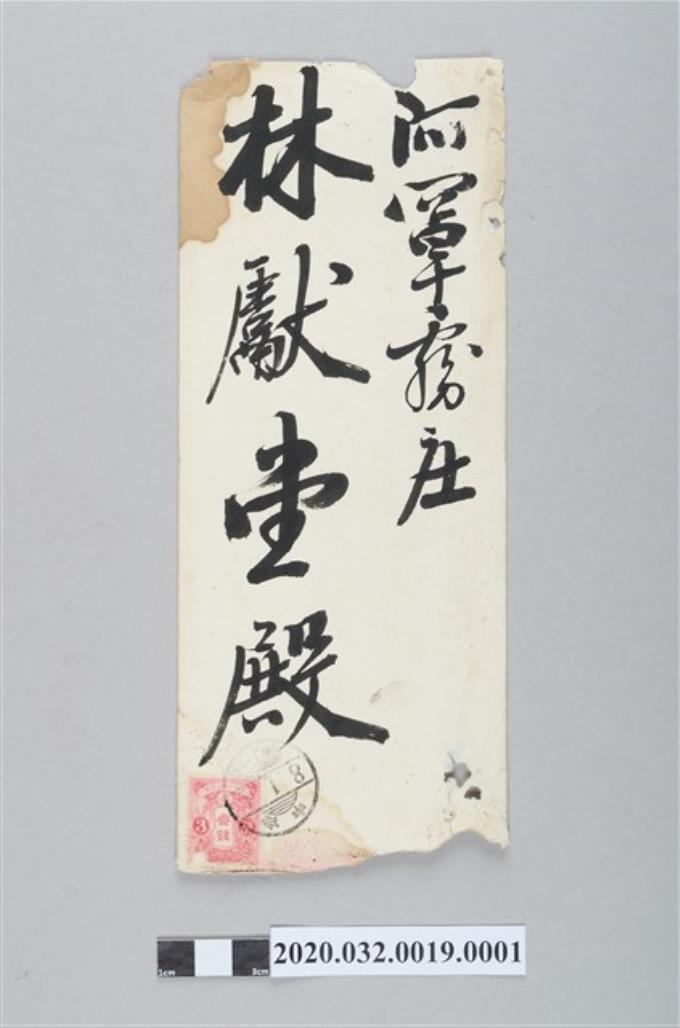 阿罩霧庄
林獻堂殿
8
1
3
參錢
1cm
3cm
2020.032.0019.0001